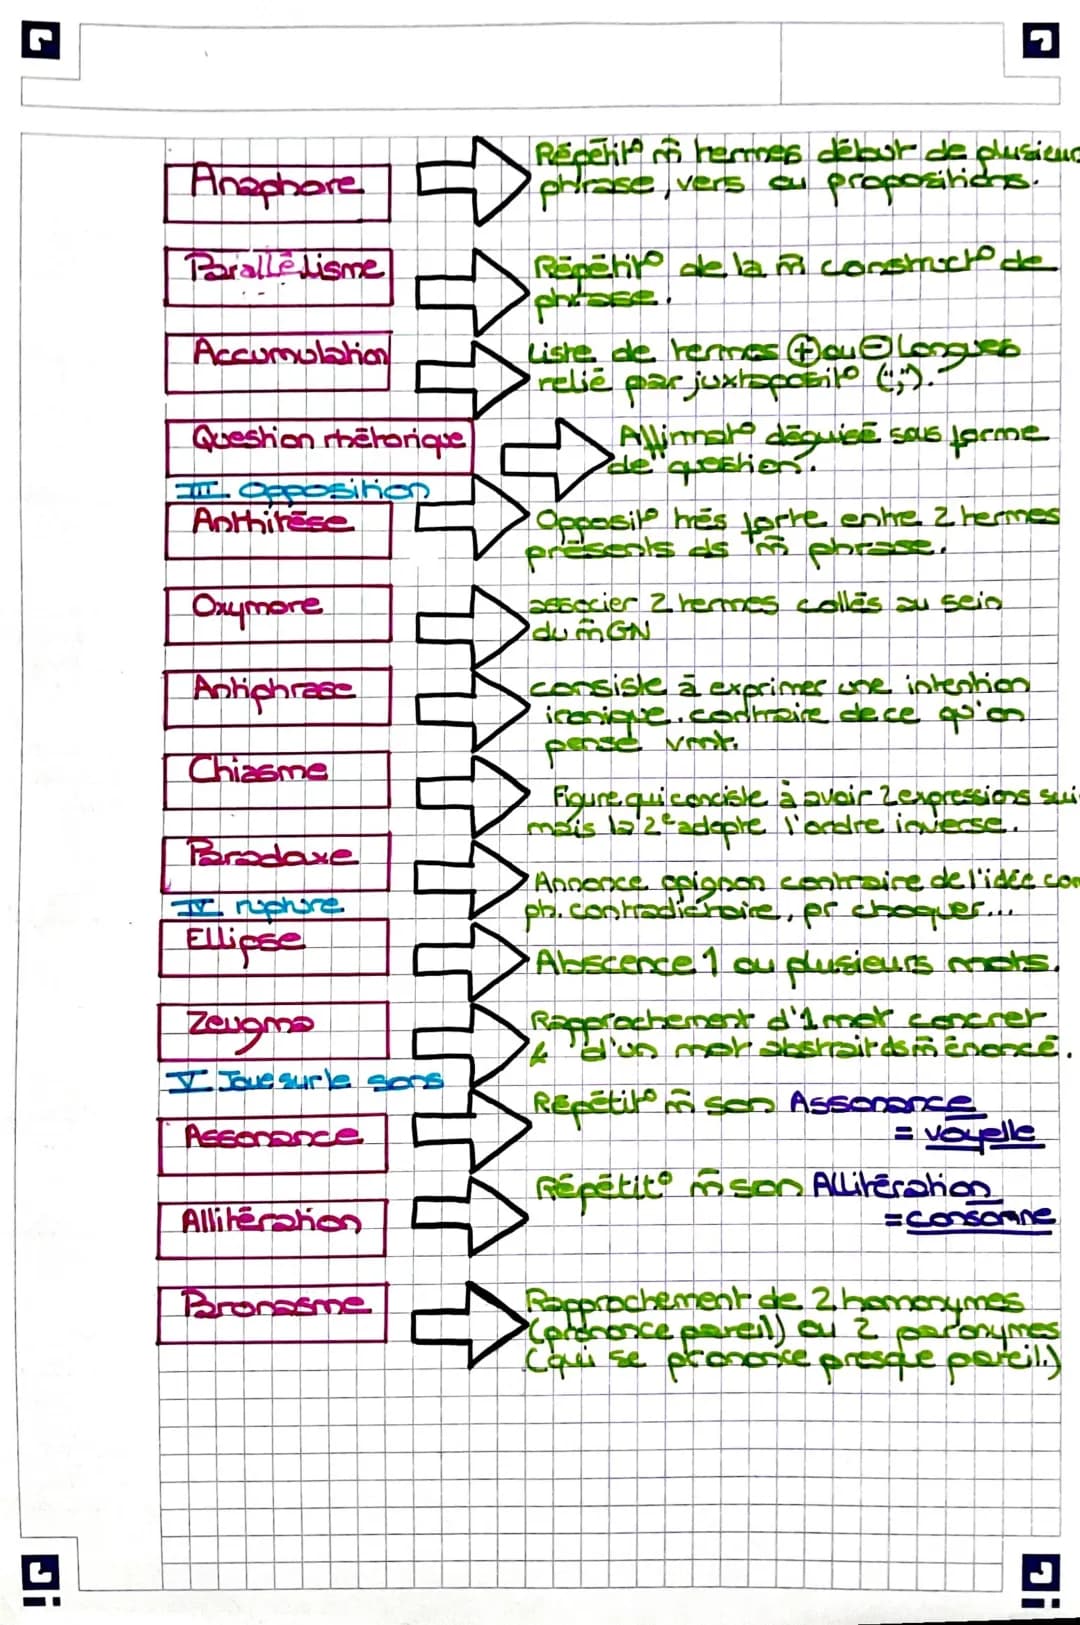 Anaphore
Répétit° m̄ termes début de plusieurs
phrase, vers ou propositions.
Parallélisme
Répétit° de la m̄ construct° de
phrase.
Accumulation
Liste de termes ⊕ ou ⊖ longues
relié par juxtaposit° (";").
Question rhétorique
Affirmat° déguisé sous forme
de question.
III Opposition
Anthitèse
Opposit° très forte entre 2 termes
présents ds m̄ phrase.
Oxymore
associer 2 termes collés au sein
du m̄ GN
Antiphrase
consiste à exprimer une intention
ironique. contraire de ce qu'on
pense vmt.
Chiasme
Figure qui conciste à avoir 2 expressions sui
mais la 2e adopte l'ordre inverse.
Paradoxe
Annonce opignon contraire de l'idée com
ph. contradictoire, pr choquer...
IV rupture
Ellipse
Abscence 1 ou plusieurs mots.
Zeugma
Rapprochement d'1 mot concret
& d'un mot abstrait ds m̄ énoncé.
V Joue sur le sons
Assonance
Répétit° m̄ son Assonance
= voyelle
Allitération
Répétit° m̄ son Allitération
= consonne
Paronasme
Rapprochement de 2 homonymes
(prononce pareil) ou 2 paronymes
(qui se prononce presque pareil.)